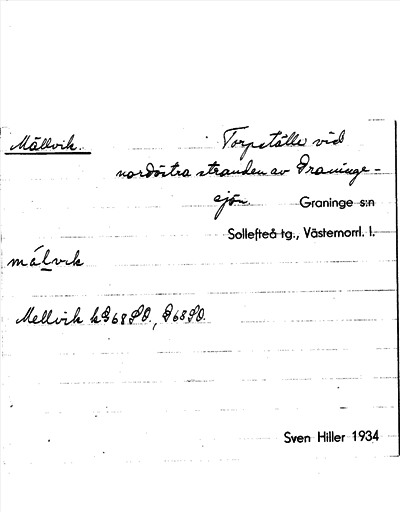 Mällvik. Torpställe vid
nordöstra stranden av Graninge-
sjön Graninge s:n
Sollefteå tg., Västernorrl. l.
målvik
Mellvik kG68SO., G68SO.
Sven Hiller 1934